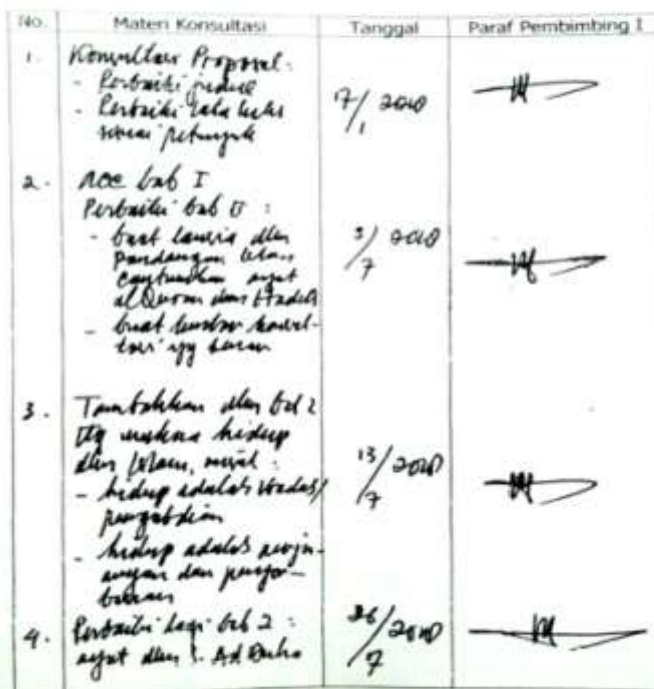 No. Materi Konsultasi Tanggal Paraf Pembimbing I
1. Konsultasi Proposal :
- Perbaiki judul
- Perbaiki tata tulis
sesuai petunjuk
17/1
2. ACC bab I
Perbaiki bab II :
- buat lansia dlm
pandangan Islam
cantumkan ayat
al Quran dan Hadits
- buat lembar konsul-
tasi yg benar
3/7
3. Tambahkan dlm bab 2
ttg makna hidup
dlm Islam, misal :
- hidup adalah ibadah/
pengabdian
- hidup adalah perju-
angan dan pengor-
banan
13/7
4. Perbaiki lagi bab 2 :
ayat dlm S. Ad Duha
26/7